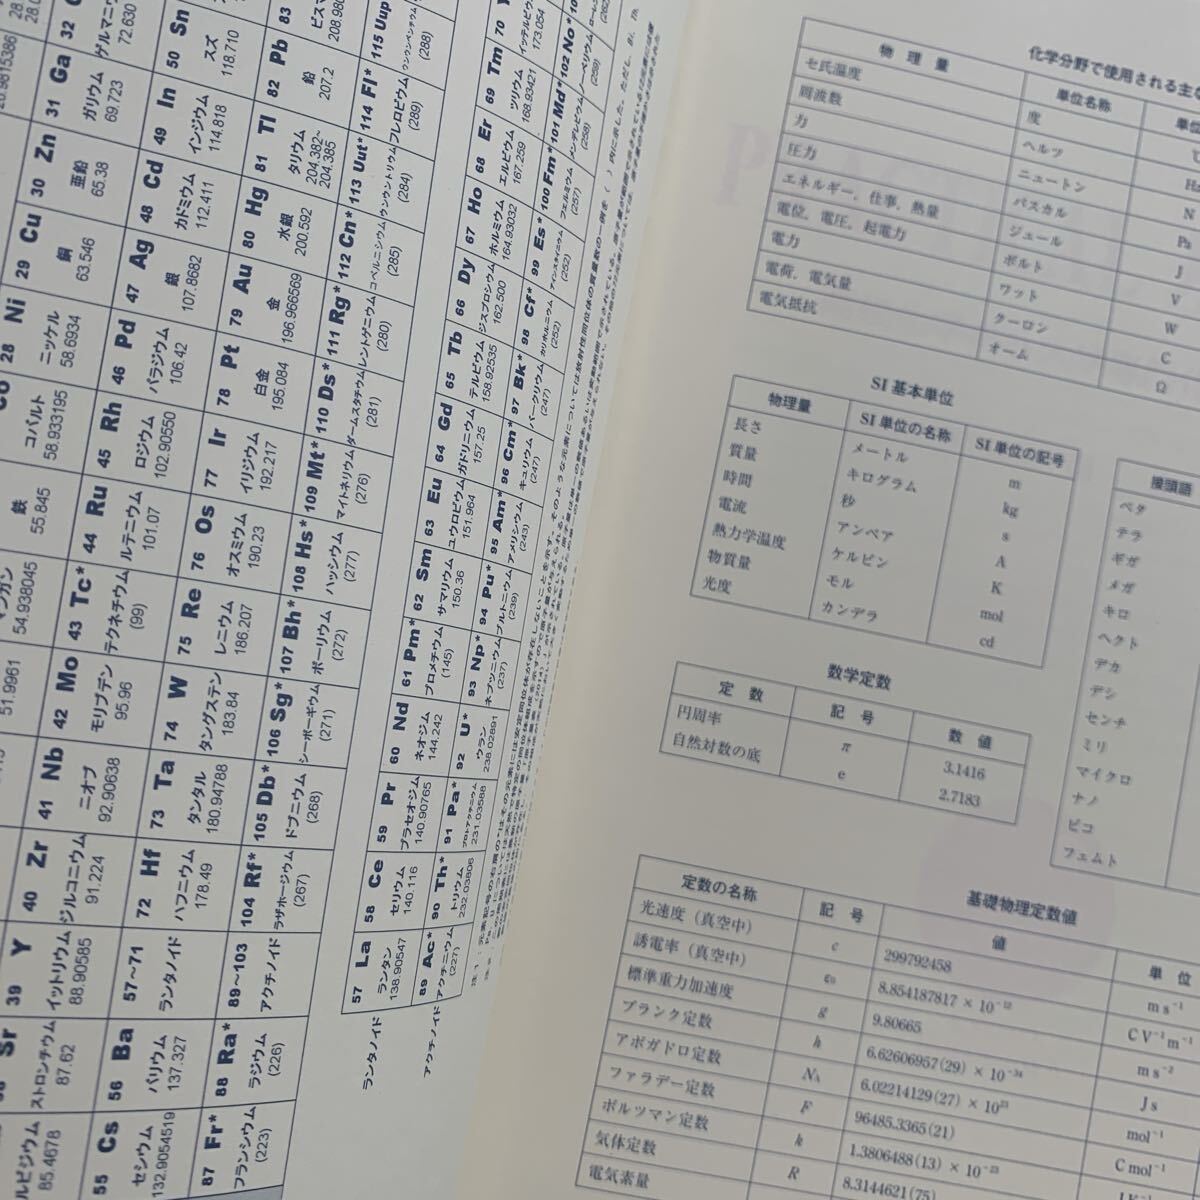 32
ゲルマニウム
72.630
50 Sn
スズ
118.710
82 Pb
鉛
207.2
83
208.980
115 Uup
ウンウンペンチウム
(288)
31 Ga
ガリウム
69.723
49 In
インジウム
114.818
81 Tl
タリウム
204.382~
204.385
114 Fl*
フレロビウム
(289)
30 Zn
亜鉛
65.38
48 Cd
カドミウム
112.411
80 Hg
水銀
200.592
113 Uut*
ウンウントリウム
(284)
29 Cu
銅
63.546
47 Ag
銀
107.8682
79 Au
金
196.966569
112 Cn*
コペルニシウム
(285)
28 Ni
ニッケル
58.6934
46 Pd
パラジウム
106.42
78 Pt
白金
195.084
111 Rg*
レントゲニウム
(280)
Co
コバルト
58.933195
45 Rh
ロジウム
102.90550
77 Ir
イリジウム
192.217
110 Ds*
ダームスタチウム
(281)
鉄
55.845
44 Ru
ルテニウム
101.07
76 Os
オスミウム
190.23
109 Mt*
マイトネリウム
(276)
マンガン
54.938045
43 Tc*
テクネチウム
(99)
75 Re
レニウム
186.207
108 Hs*
ハッシウム
(277)
51.9961
42 Mo
モリブデン
95.96
74 W
タングステン
183.84
107 Bh*
ボーリウム
(272)
41 Nb
ニオブ
92.90638
73 Ta
タンタル
180.94788
106 Sg*
シーボーギウム
(271)
40 Zr
ジルコニウム
91.224
72 Hf
ハフニウム
178.49
105 Db*
ドブニウム
(268)
39 Y
イットリウム
88.90585
57~71
ランタノイド
104 Rf*
ラザホージウム
(267)
Sr
ストロンチウム
87.62
56 Ba
バリウム
137.327
89~103
アクチノイド
ルビジウム
85.4678
55 Cs
セシウム
132.9054519
88 Ra*
ラジウム
(226)
87 Fr*
フランシウム
(223)
ランタノイド
57 La
ランタン
138.90547
58 Ce
セリウム
140.116
59 Pr
プラセオジム
140.90765
60 Nd
ネオジム
144.242
61 Pm*
プロメチウム
(145)
62 Sm
サマリウム
150.36
63 Eu
ユウロピウム
151.964
64 Gd
ガドリニウム
157.25
65 Tb
テルビウム
158.92535
66 Dy
ジスプロシウム
162.500
67 Ho
ホルミウム
164.93032
68 Er
エルビウム
167.259
69 Tm
ツリウム
168.93421
70
イッテルビウム
173.054
アクチノイド
89 Ac*
アクチニウム
(227)
90 Th*
トリウム
232.03806
91 Pa*
プロトアクチニウム
231.03588
92 U*
ウラン
238.02891
93 Np*
ネプツニウム
(237)
94 Pu*
プルトニウム
(239)
95 Am*
アメリシウム
(243)
96 Cm*
キュリウム
(247)
97 Bk*
バークリウム
(247)
98 Cf*
カリホルニウム
(252)
99 Es*
アインスタイニウム
(252)
100 Fm*
フェルミウム
(257)
101 Md*
メンデレビウム
(258)
102 No*
ノーベリウム
(259)
化学分野で使用される主な
物理量 単位名称
セ氏温度 度
周波数 ヘルツ
力 ニュートン N
圧力 パスカル Pa
エネルギー,仕事,熱量 ジュール J
電位,電圧,起電力 ボルト V
電力 ワット W
電荷,電気量 クーロン C
電気抵抗 オーム Ω
SI 基本単位
物理量 SI 単位の名称 SI 単位の記号
長さ メートル m
質量 キログラム kg
時間 秒 s
電流 アンペア A
熱力学温度 ケルビン K
物質量 モル mol
光度 カンデラ cd
接頭語
ペタ
テラ
ギガ
メガ
キロ
ヘクト
デカ
デシ
センチ
ミリ
マイクロ
ナノ
ピコ
フェムト
数学定数
定数 記号 数値
円周率 π 3.1416
自然対数の底 e 2.7183
基礎物理定数値
定数の名称 記号 値 単位
光速度(真空中) c 299792458 m s⁻¹
誘電率(真空中) ε₀ 8.854187817 × 10⁻¹² C V⁻¹ m⁻¹
標準重力加速度 g 9.80665 m s⁻²
プランク定数 h 6.62606957(29) × 10⁻³⁴ J s
アボガドロ定数 N_A 6.02214129(27) × 10²³ mol⁻¹
ファラデー定数 F 96485.3365(21) C mol⁻¹
ボルツマン定数 k 1.3806488(13) × 10⁻²³
気体定数 R 8.3144621(75)
電気素量